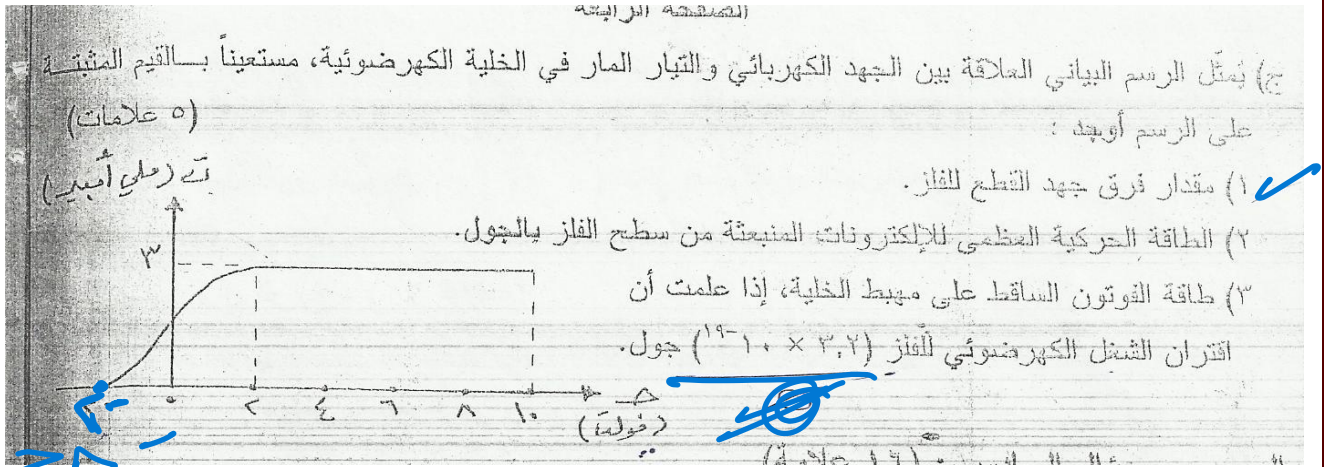 الصفحة الرابعة
ج) يمثّل الرسم البياني العلاقة بين الجهد الكهربائي والتيار المار في الخلية الكهرضوئية، مستعيناً بالقيم المثبتة
على الرسم أوجد :
(٥ علامات)
١) مقدار فرق جهد القطع للفلز.
٢) الطاقة الحركية العظمى للإلكترونات المنبعثة من سطح الفلز بالجول.
٣) طاقة الفوتون الساقط على مهبط الخلية، إذا علمت أن
اقتران الشغل الكهرضوئي للفلز (٣,٢ × ١٠-١٩) جول.
ت (ملي أمبير)
٣
٠ ٢ ٤ ٦ ٨ ١٠
جـ
(فولت)
(١٦ علامة)